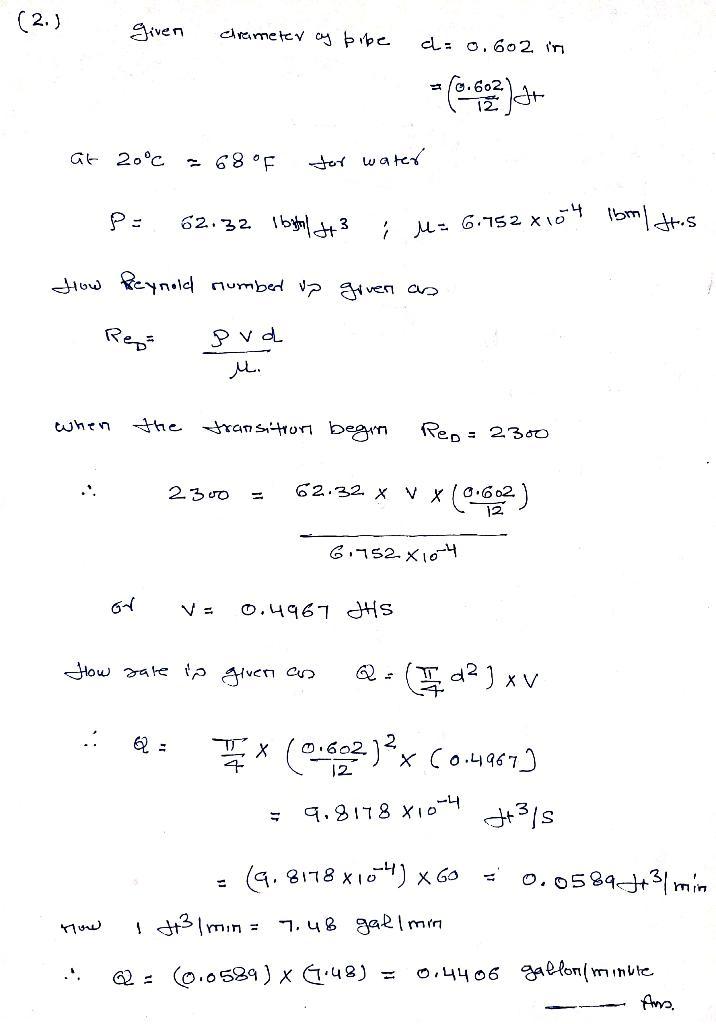 (2.) Given diameter of pipe d = 0.602 in
= (0.602/12) ft
at 20°C = 68°F for water
ρ = 62.32 lbm/ft3 ; μ = 6.752 x 10-4 lbm/ft.s
Now Reynold number is given as
ReD = ρ v d / μ.
when the transition begin ReD = 2300
∴ 2300 = 62.32 x v x (0.602/12) / 6.752 x 10-4
or v = 0.4967 ft/s
flow rate is given as Q = (π/4 d2) x v
∴ Q = π/4 x (0.602/12)2 x (0.4967)
= 9.8178 x 10-4 ft3/s
= (9.8178 x 10-4) x 60 = 0.0589 ft3/min
Now 1 ft3/min = 7.48 gal/min
∴ Q = (0.0589) x (7.48) = 0.4406 gallon/minute
Ans.